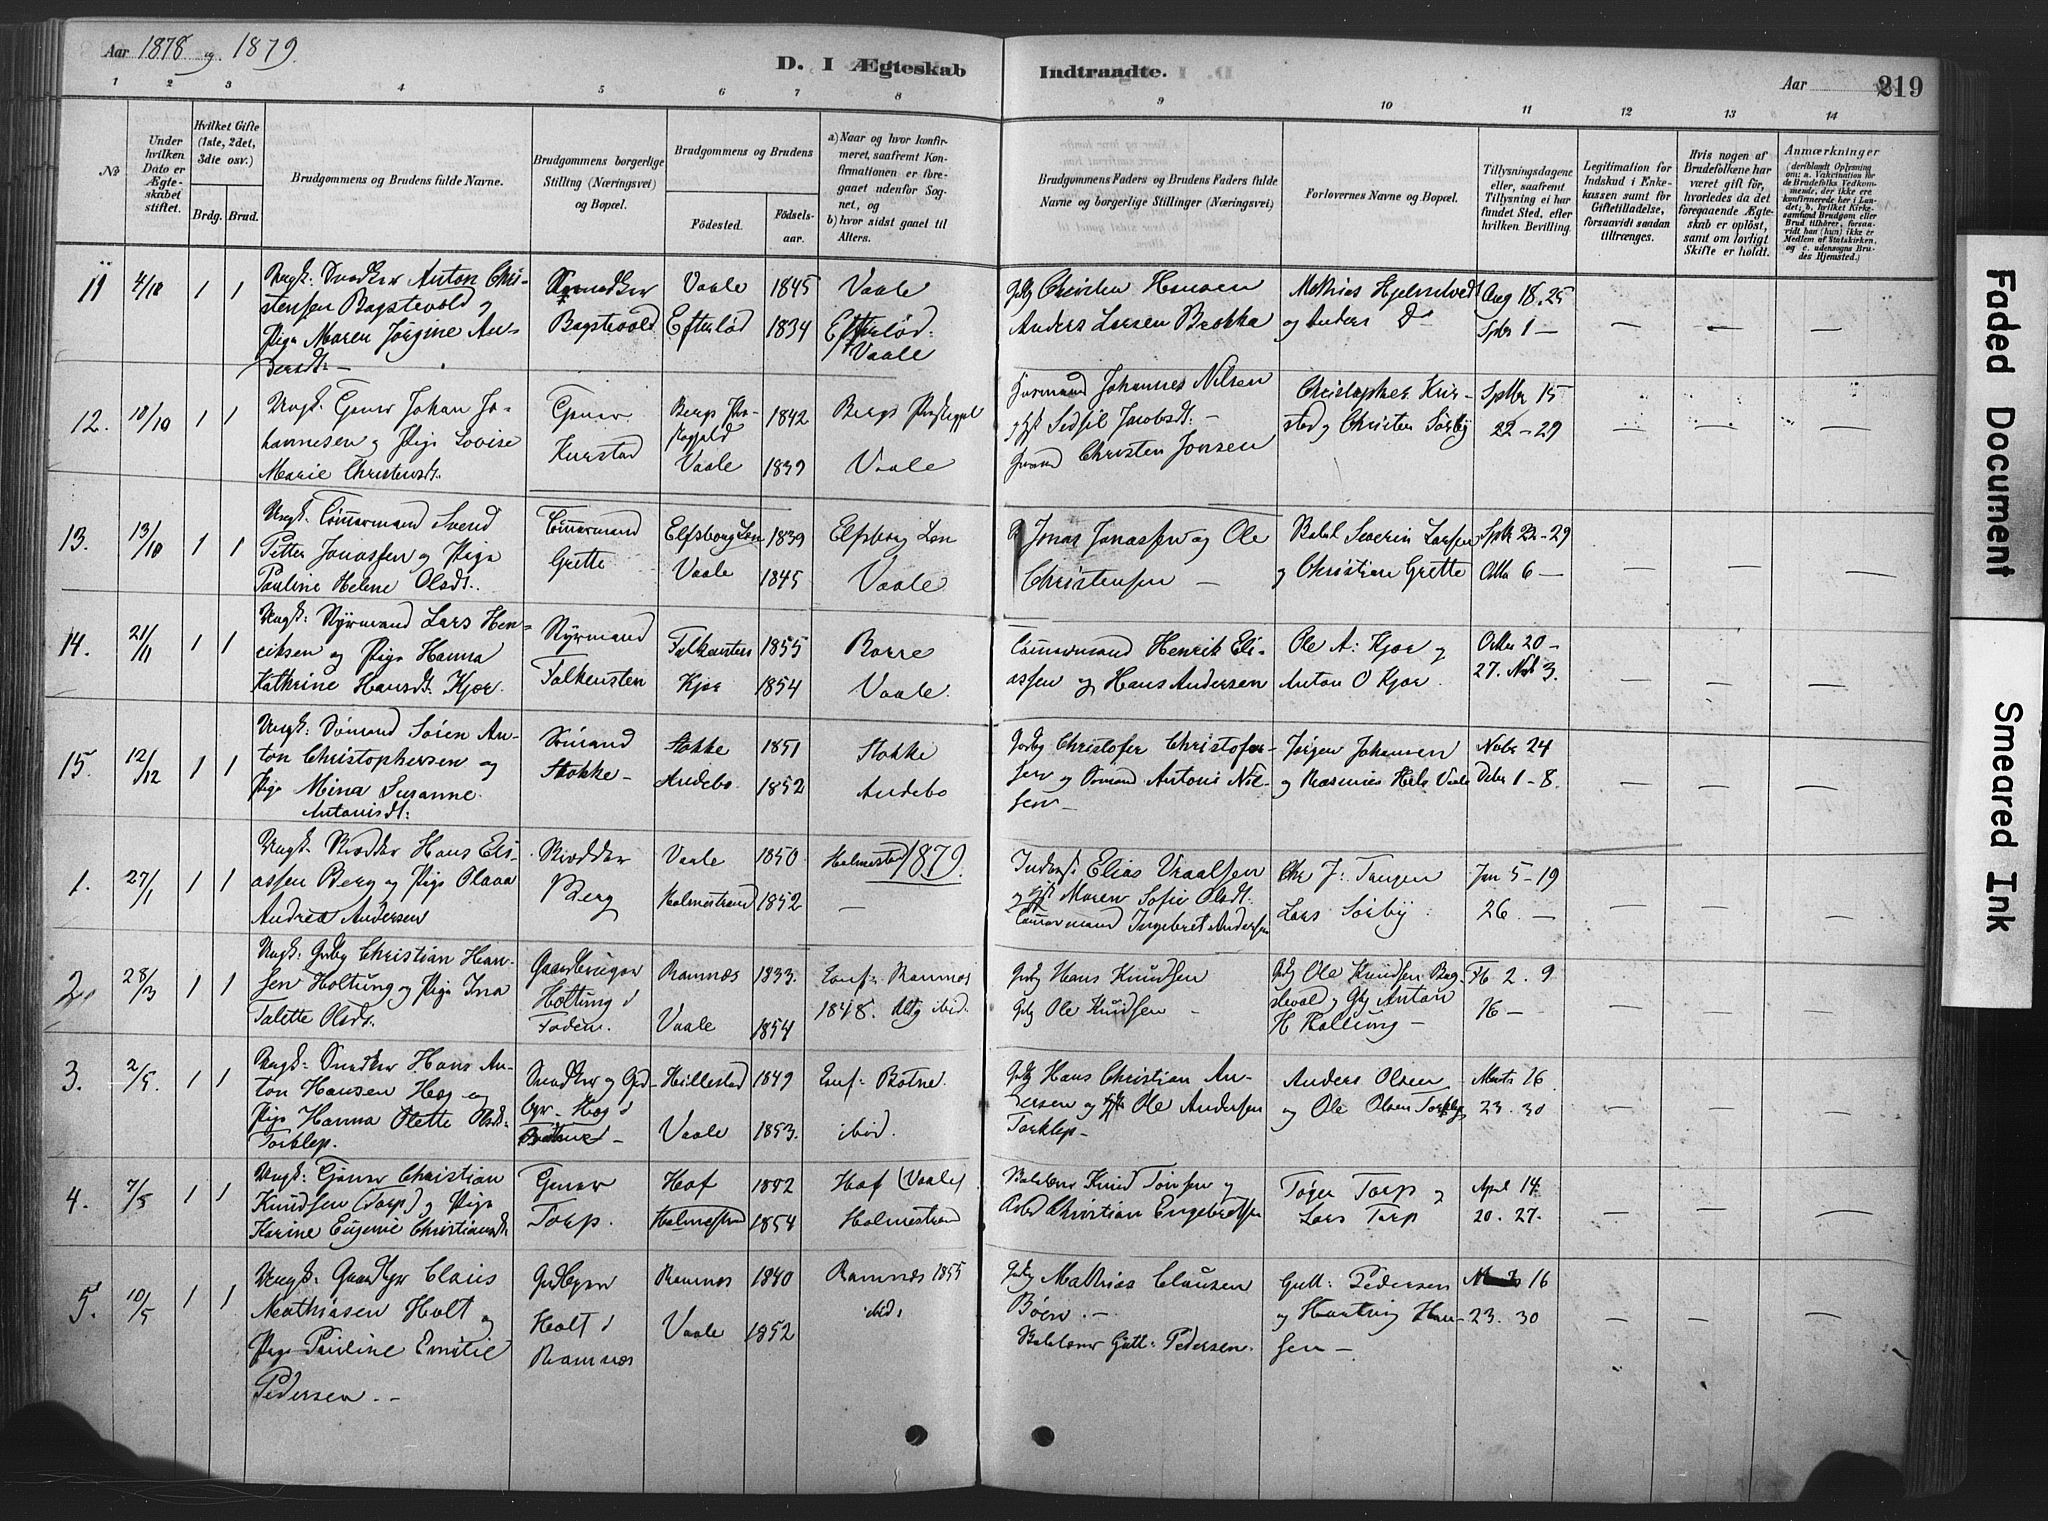 Aar 1878 og 1879.
D. I Ægteskab Indtraadte.
Aar 219
1 2 3 4 5 6 7 8 9 10 11 12 13 14
No
Under hvilken Dato er Ægteskabet stiftet.
Hvilket Gifte (1ste, 2det, 3die osv.)
Brdg. Brud.
Brudgommens og Brudens fulde Navne.
Brudgommens borgerlige Stilling (Næringsvei) og Bopæl.
Brudgommens og Brudens
Fødested. Fødselsaar.
a) Naar og hvor konfirmeret, saafremt Konfirmationen er foregaaet udenfor Sognet, og
b) hvor sidst gaaet til Alters.
Brudgommens Faders og Brudens Faders fulde Navne og borgerlige Stillinger (Næringsvei)
Forlovernes Navne og Bopæl.
Tillysningsdagene eller, saafremt Tillysning ei har fundet Sted, efter hvilken Bevilling.
Legitimation for Indskud i Enkekassen samt for Giftetilladelse, forsaavidt saadan tiltrænges.
Hvis nogen af Brudefolkene har været gift før, hvorledes da det foregaaende Ægteskab er opløst, samt om lovligt Skifte er holdt.
Anmærkninger
(deriblandt Oplysning om: a. Vakcination for de Brudefolks Vedkommende, der ikke ere konfirmerede her i Landet; b. hvilket Kirkesamfund Brudgom eller Brud tilhører, forsaavidt han (hun) ikke er Medlem af Statskirken, og c. udensogns Brudes Hjemsted.)
11 4/10 1 1
Ungk: Snedker Anton Christensen Bagstevold og
Pige Maren Jørgine Andersdt: —
Snedker
Bagstevold
Vaale 1845 Vaale
Efterlød 1834 Efterlød. Vaale
Gbg Christen Hansen
Anders Larsen Brekka
Mathias Hjelmtvedt
og Anders Do
Aug 18. 25
Spbr 1 —
12. 10/10 1 1
Ungk: Gjøner Johan Johannesen og Pige Lovise
Marie Christensdt.
Bergs 1842 Bergs
Vaale 1839 Vaale
Husmand Johannes Nilsen
Jacobsdt. —
Christen Jonsen
Christopher
og Christen Sørby
Sptbr 15
22 — 29
13. 13/10 1 1
Ungk: Tømmermand Svend
Petter Jonassen og Pige
Pauline Helene Olsdt.
Tømmermand
Grette
Elfsborg Len 1839 Elfsborg Len
Vaale 1845 Vaale
Jonas Jonassen og Ole
Christensen —
Severin Larsen
og Christian Grette
Sptbr 22 - 29
Octb 6 —
14. 21/11 1 1
Ungk: Styrmand Lars Henriksen og Pige Hanna
Kathrine Hansdt: Kjær.
Styrmand
Falkensten
Falkensten 1855 Borre
Kjær 1854 Vaale.
Tømmermand Henrik Eliassen og Hans Andersen
Ole A: Kjær og
Anton O Kjær.
Octbr 20 —
27. Nvb 3.
15. 12/12 1 1
Ungk: Sømand Søren Anton Christophersen og
Pige Mina Susanne
Antonisdt:
Sømand
Stokke —
Stokke 1851 Stokke
Andebo 1852 Andebo
Gbg Christofer Christofersen og Sømand Antoni Nielsen —
Jørgen Johansen
og Rasmus Vaale
Nvbr 24
Debr 1 - 8.
1879.
1. 27/1 1 1
Ungk. Skrædder Hans Eliassen Berg og Pige Olava
Andrea Andersen
Skrædder
Berg
Vaale 1850. Holmestrand
Holmestrand 1852 —
Inderst Elias Vraalsen
og Maren Sofie Olsdt.
Tømmermand Ingebret Andersen
Chr J: Tangen
Lars Sørby.
Jan 5 - 19
26. —
2. 28/3 1 1
Ungk: Gbg Christian Hansen Holtung og Pige Ina
Talette Olsdt.
Gaardbruger
Holtung i
Foden.
Ramnæs 1833. Conf: Ramnæs
Vaale 1854 1848. ibid.
Gbg Hans Knudsen
Gbg Ole Knudsen —
Gbg Ole Knudsen Bagstevold og Gbg Anton
H Holtung —
Fb 2. 9.
16 —
3. 2/5. 1 1
Ungk: Snedker Hans Anton Hansen Høg og
Pige Hanna Olette Olsdt:
Torklep.
Snedker og
Høg i
Hillestad 1849 Conf: Botne
Vaale 1853. ibid.
Gbg Hans Christian Andersen og Ole Andersen
Torklep —
Anders Olsen
og Ole Olsen Torklep
Marts 16
23. 30
4. 7/5 1 1
Ungk: Gjøner Christian
Knudsen (Torp) og Pige
Karine Eugenie Christiansdt.
Torp.
Hof 1852 Hof (Vaale)
Holmestrand 1854 Holmestrand
Knud Tonsen og
Christian Engebretsen
Tøger Torp og
Lars Torp
April 14
20. 27.
5. 10/5 1 1
Ungk: Gaardbgr Claus
Mathiasen Holt og
Pige Pauline Emilie
Pedersen. —
Gdbgr
Holt i
Ramnæs
Ramnæs 1840 Ramnæs 1855
Vaale 1852 ibid.
Gbg Mathias Clausen
Bøen. —
Gutt: Pedersen.
Gutt: Pedersen
og Hartvig Hansen —
16
23. 30
Faded Document
Smeared Ink